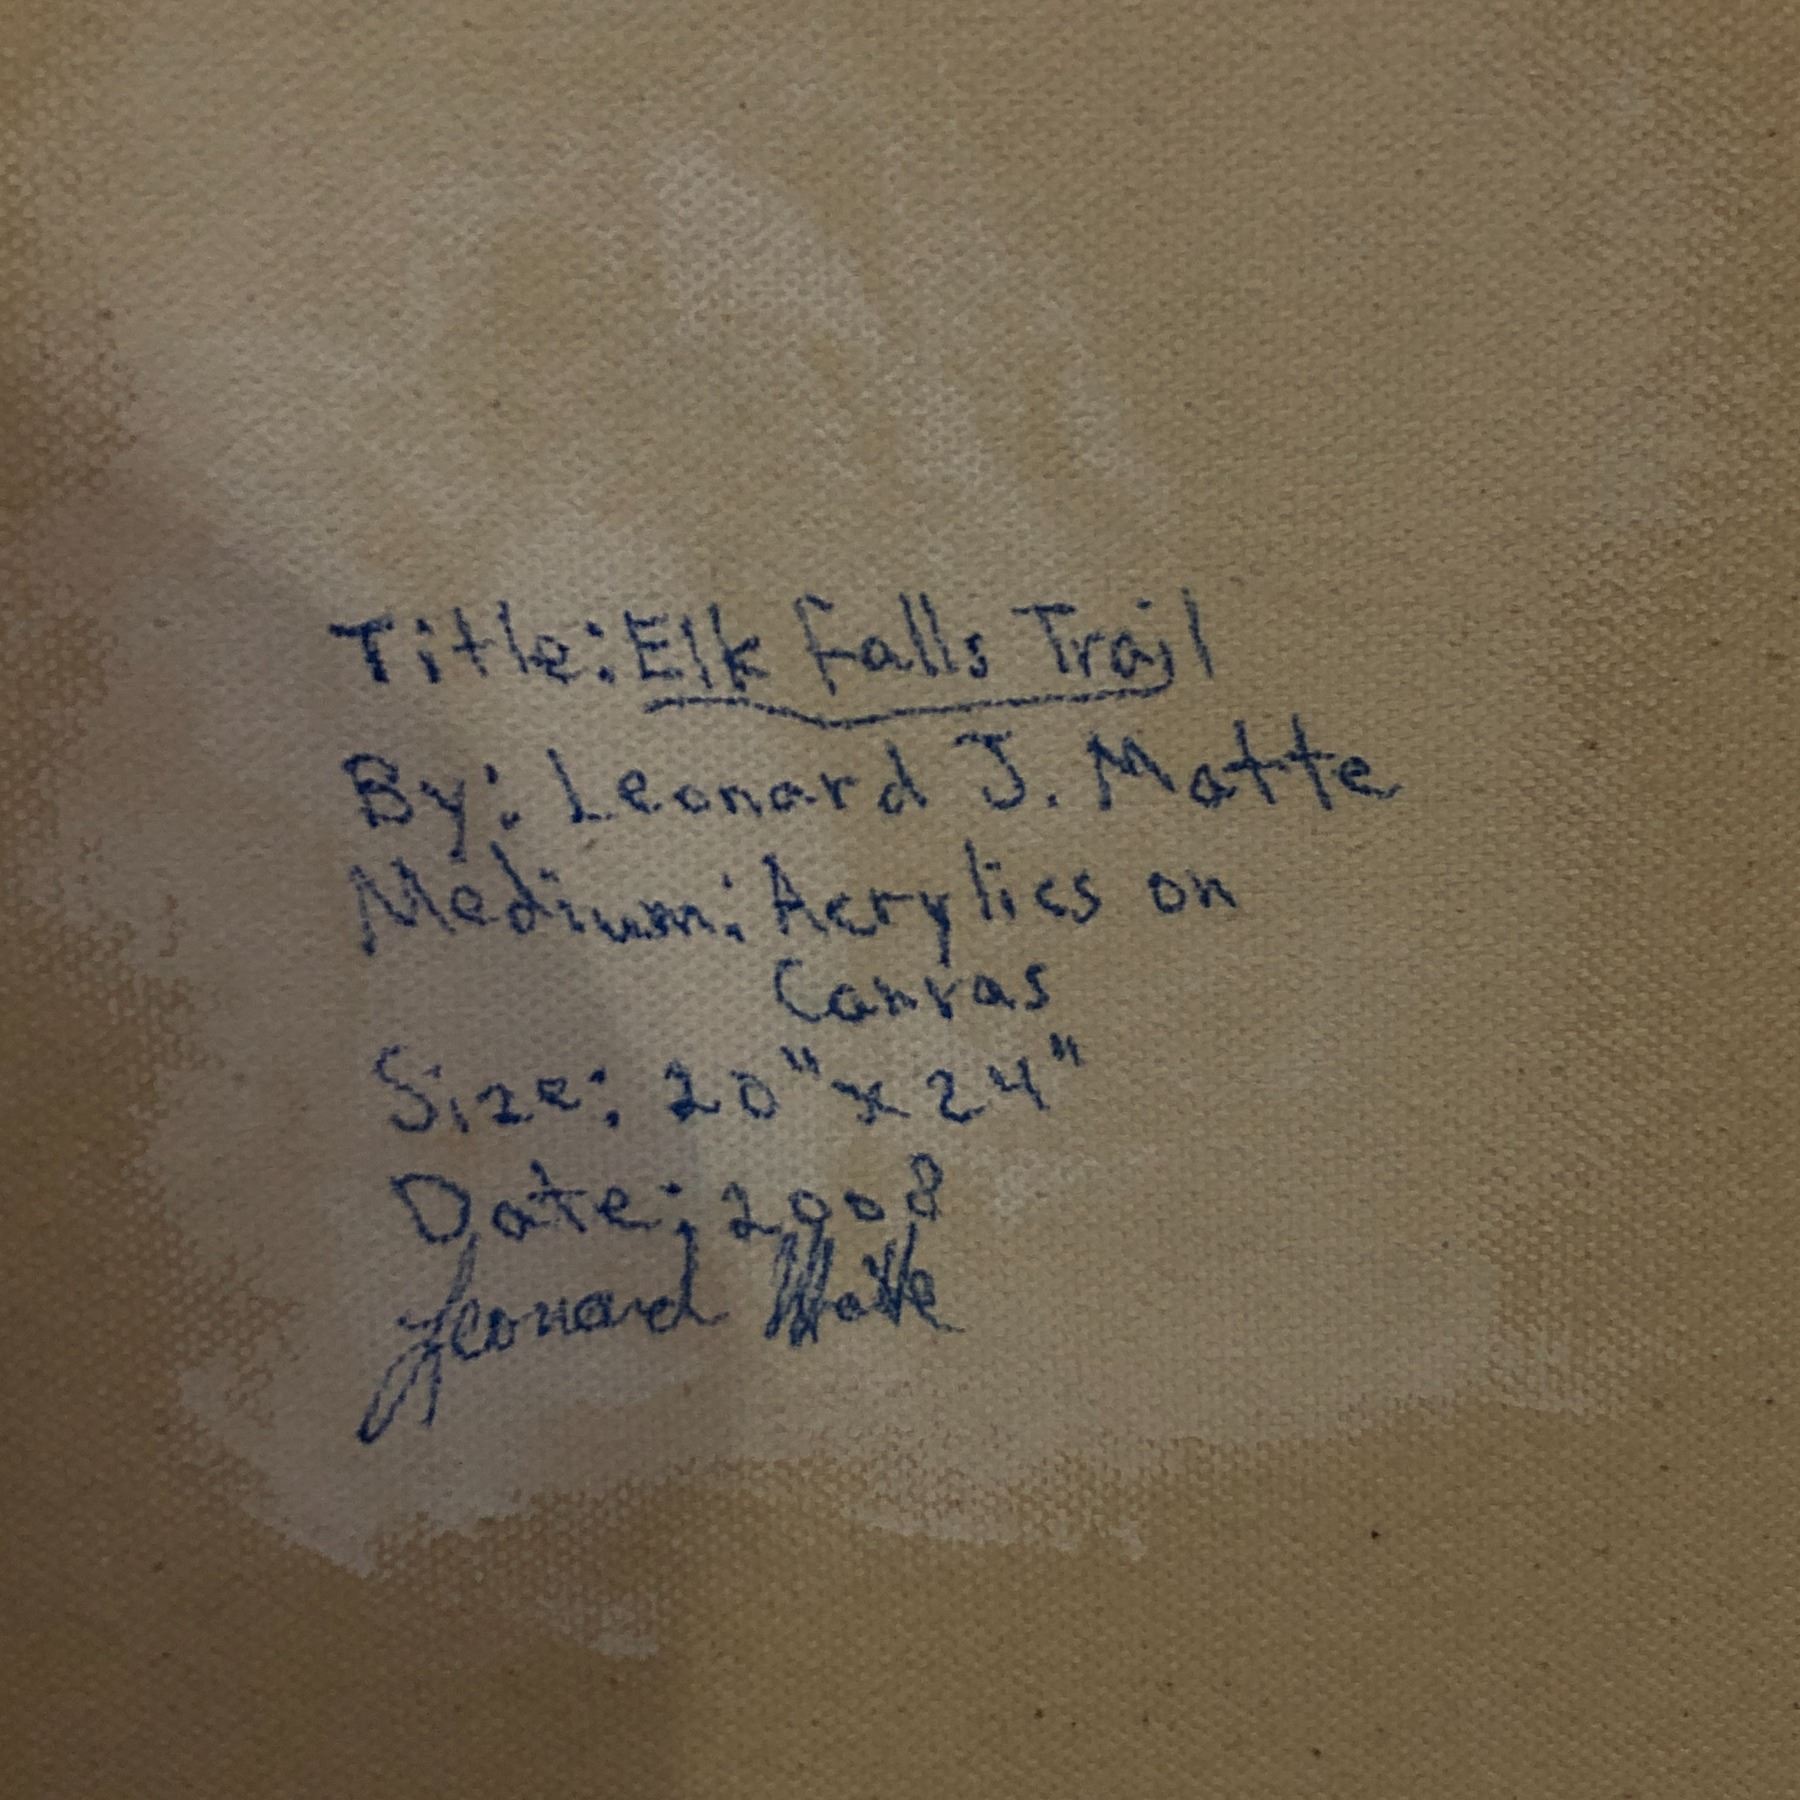 Title: Elk Falls Trail
By: Leonard J. Matte
Medium: Acrylics on
Canvas
Size: 20" x 24"
Date: 2008
Leonard Matte